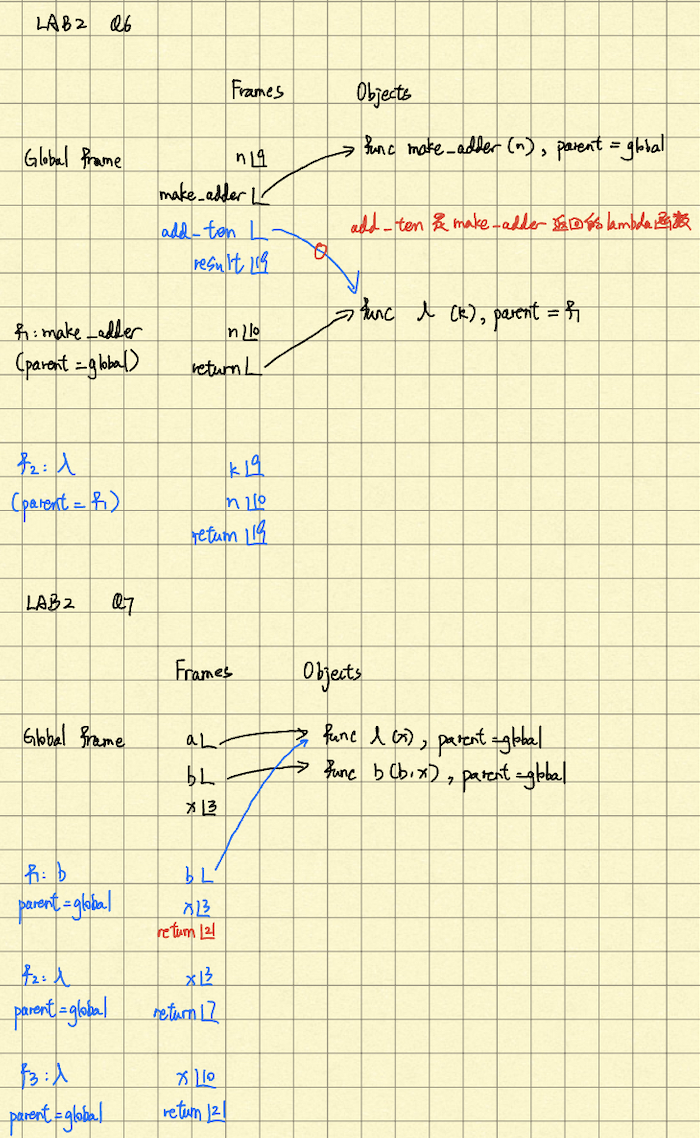 LAB2 Q6
Frames Objects
Global frame n 9 func make_adder (n), parent = global
make_adder
add_ten add_ten 是 make_adder 返回的 lambda 函数
result 19
func λ (k), parent = f1
f1: make_adder n 10
(parent = global) return
f2: λ k 9
(parent = f1) n 10
return 19
LAB2 Q7
Frames Objects
Global frame a func λ (x), parent = global
b func b (b, x), parent = global
x 3
f1: b b
parent = global x 3
return 21
f2: λ x 3
parent = global return 7
f3: λ x 10
parent = global return 21